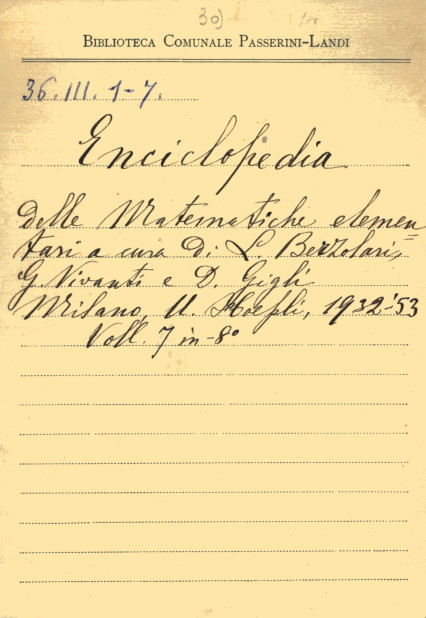 30)
BIBLIOTECA COMUNALE PASSERINI-LANDI
36.III.1-7.
Enciclopedia
delle Matematiche elemen=
tari a cura di L. Berzolari,
G. Vivanti e D. Gigli
Milano, U. Hoepli, 1932-'53
Voll. 7 in-8º